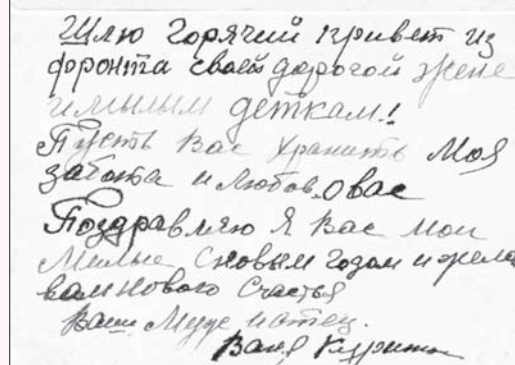 Шлю Горячий привет из
фронта своей дорогой жене
и милым деткам!
Пусть Вас хранить Моя
забота и Любов. о вас
Поздравляю Я Вас Мои
Милые С новым Годом и жела
вам Нового Счастья
Ваш Муж и отец.
Ваня